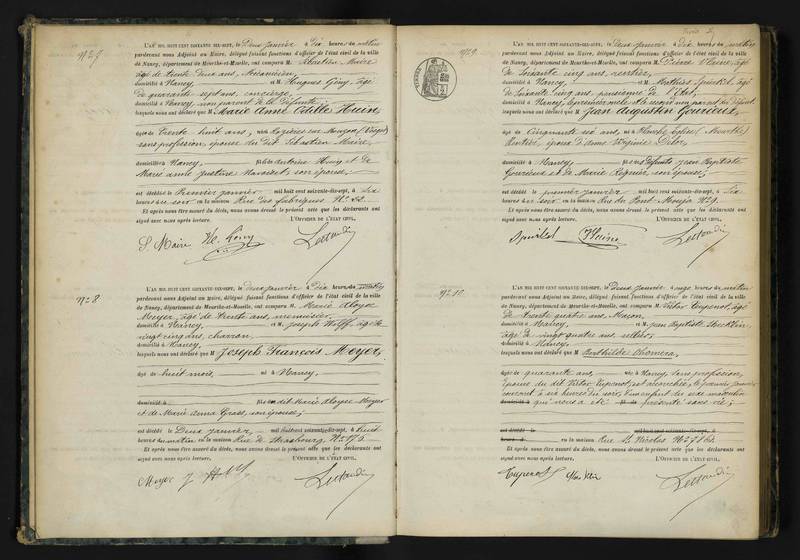 N° 7
L'AN MIL HUIT CENT SOIXANTE DIX-SEPT, le Deux janvier à Dix heures du matin
pardevant nous Adjoint au Maire, délégué faisant fonctions d'officier de l'état civil de la ville
de Nancy, département de Meurthe-et-Moselle, ont comparu M. Sébastien Maire
âgé de trente deux ans, Mécanicien,
domicilié à Nancy, et M. Hugues Gény, âgé
de quarante sept ans, concierge,
domicilié à Nancy, non parent de la défunte,
lesquels nous ont déclaré que Marie Anne Odille Huin
âgée de Trente huit ans, née Rozières sur Mouzon (Vosges)
sans profession, épouse du dit Sébastien Maire,
domiciliée à Nancy, fille de Antoine Huin et de
Marie anne Justine son épouse;
est décédée le Premier janvier mil huit cent soixante-dix-sept, à six
heures du soir en la maison Rue des fabriques N°
Et après nous être assuré du décès, nous avons dressé le présent acte que les déclarants ont
signé avec nous après lecture. L'OFFICIER DE L'ÉTAT CIVIL,
S. Maire H. Gény
N° 8
L'AN MIL HUIT CENT SOIXANTE-DIX-SEPT, le deux janvier à Dix heures du matin
pardevant nous Adjoint au Maire, délégué faisant fonctions d'officier de l'état civil de la ville
de Nancy, département de Meurthe-et-Moselle, ont comparu M. Marie Aloyse
Meyer, âgé de trente ans, menuisier,
domicilié à Nancy, et M. Joseph Wolff, âgé de
vingt cinq ans, charron,
domicilié à Nancy,
lesquels nous ont déclaré que M Joseph François Meyer,
âgé de huit mois, né à Nancy,
domicilié à fils du dit Marie Aloyse Meyer
et de Marie Anna Grass, son épouse;
est décédé le Deux janvier mil huit cent soixante-dix-sept, à huit
heures du matin, en la maison Rue de Strasbourg N° 176
Et après nous être assuré du décès, nous avons dressé le présent acte que les déclarants ont
signé avec nous après lecture. L'OFFICIER DE L'ÉTAT CIVIL,
Meyer J
N° 9
L'AN MIL HUIT CENT SOIXANTE-DIX-SEPT, le deux janvier à Dix heures du matin
pardevant nous Adjoint au Maire, délégué faisant fonctions d'officier de l'état civil de la ville
de Nancy, département de Meurthe-et-Moselle, ont comparu M. Pierre âgé
de Soixante cinq ans, rentier,
domicilié à Nancy, et M. Mathias âgé
de Soixante cinq ans, pensionné de l'Etat,
domicilié à Nancy, non parent du défunt
lesquels nous ont déclaré que M Jean Augustin Gourieux,
âgé de Cinquante six ans, né (Meurthe)
Rentier, époux d'Anne Virginie
domicilié à Nancy fils des défunts Jean Baptiste
Gourieux et de Marie son épouse;
est décédé le premier janvier mil huit cent soixante-dix-sept, à six
heures du soir, en la maison Rue du Pont-Mouja N° 9.
Et après nous être assuré du décès, nous avons dressé le présent acte que les déclarants ont
signé avec nous après lecture. L'OFFICIER DE L'ÉTAT CIVIL,
N° 10
L'AN MIL HUIT CENT SOIXANTE-DIX-SEPT, le deux janvier à onze heures du matin
pardevant nous Adjoint au Maire, délégué faisant fonctions d'officier de l'état civil de la ville
de Nancy, département de Meurthe-et-Moselle, ont comparu M. Victor âgé
de trente quatre ans, Maçon,
domicilié à Nancy, et M. Jean Baptiste
âgé de vingt quatre ans, sellier,
domicilié à Nancy,
lesquels nous ont déclaré que M Bathilde
âgée de quarante ans, née à Nancy, sans profession,
épouse du dit Victor est accouchée, le premier janvier
courant à six heures du soir, d'un enfant du sexe masculin
domicilié à qui nous a été présenté sans vie;
est décédé le mil huit cent soixante-dix-sept, à
heures d en la maison Rue St Nicolas N°
Et après nous être assuré du décès, nous avons dressé le présent acte que les déclarants ont
signé avec nous après lecture. L'OFFICIER DE L'ÉTAT CIVIL,